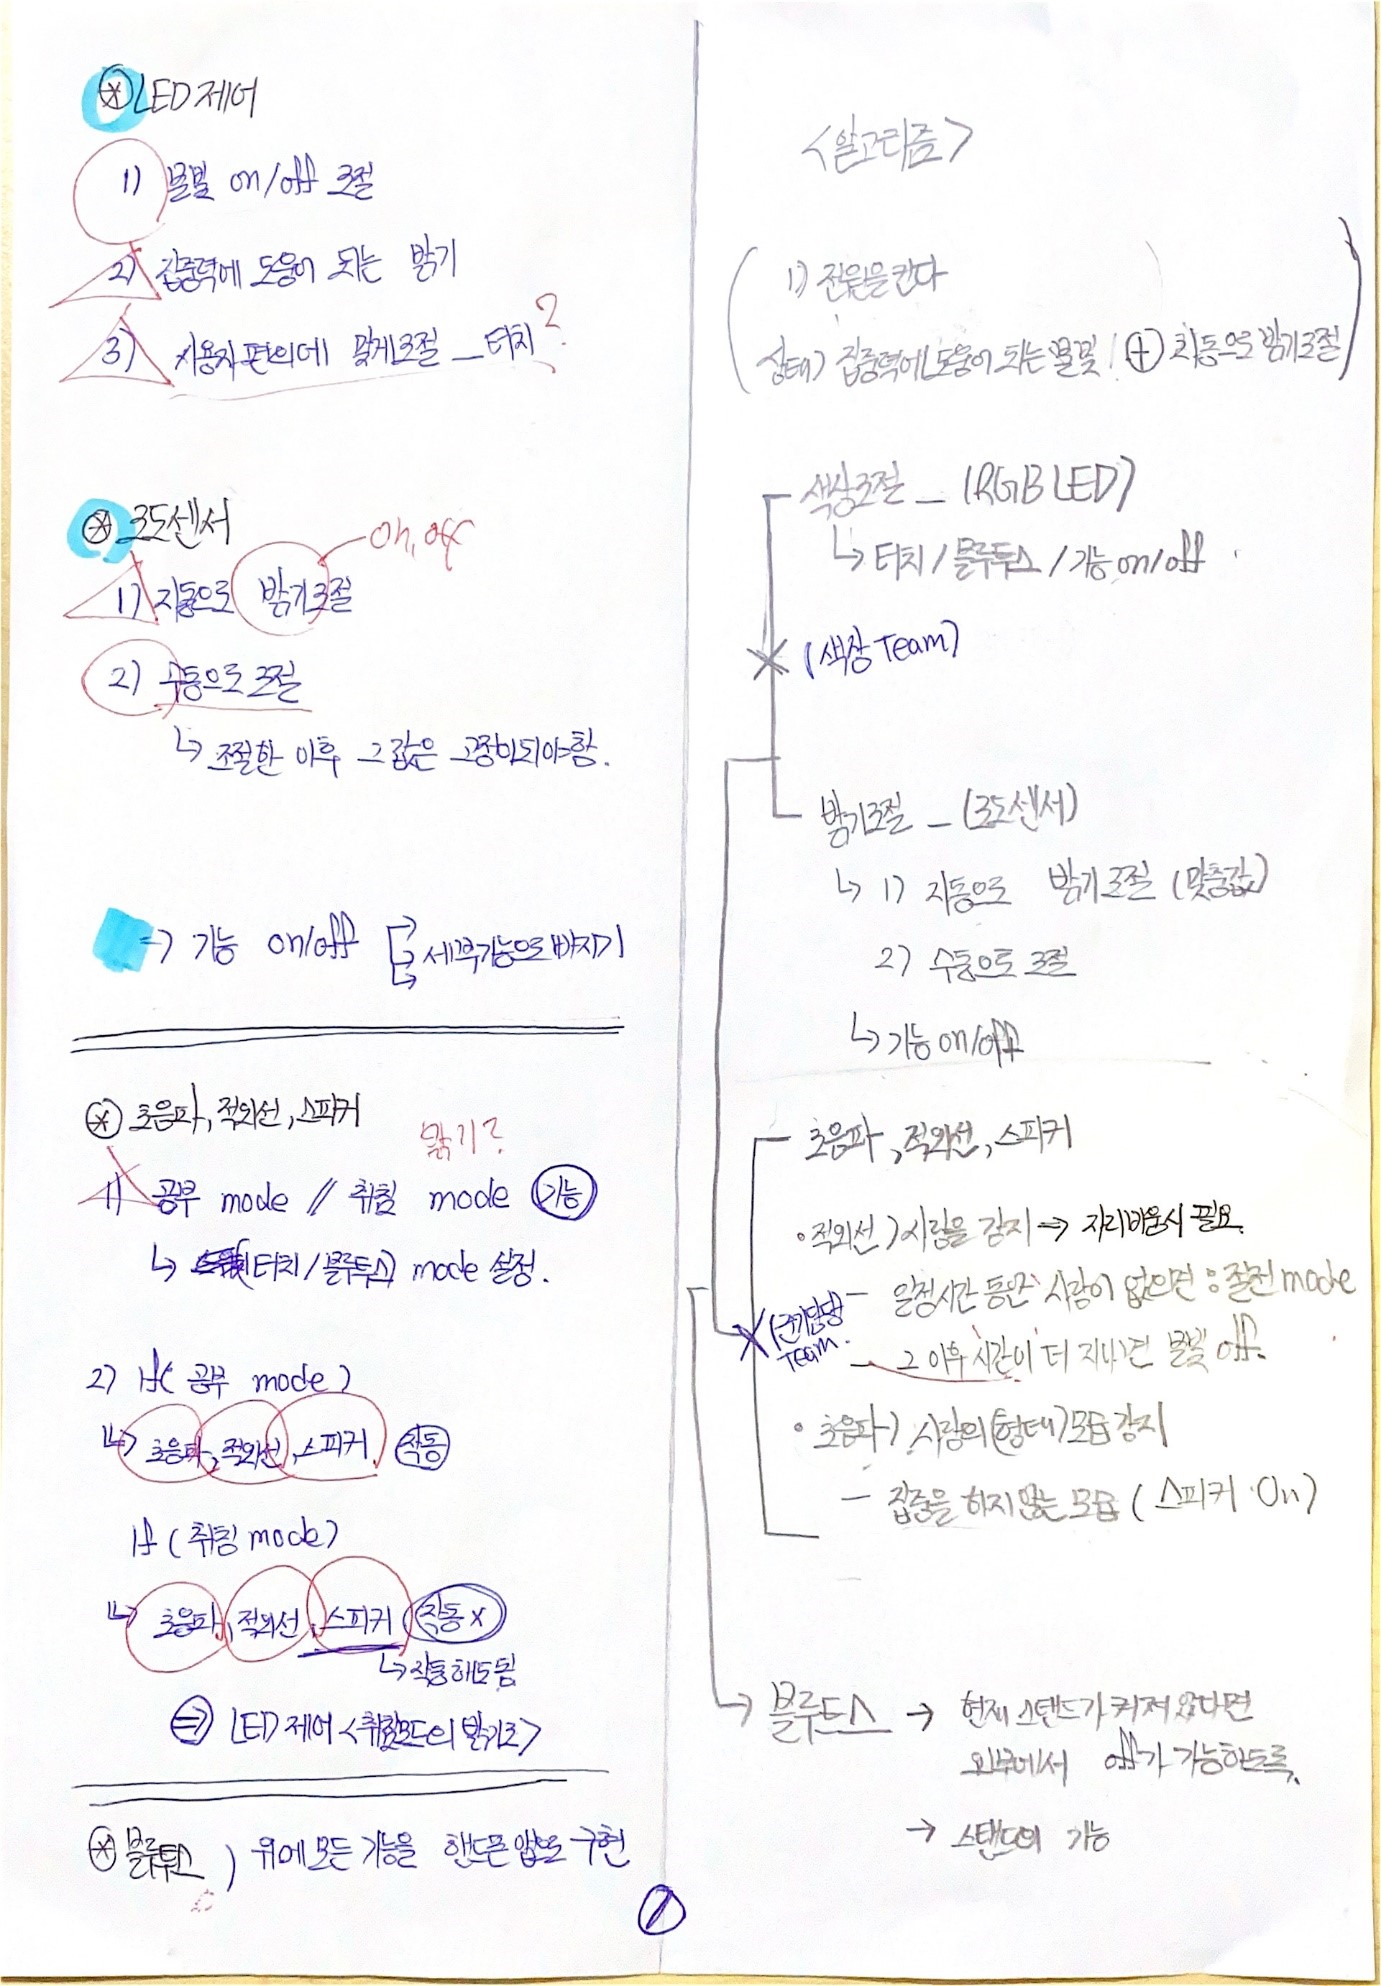 ⊛ LED 제어
1) 불빛 on/off 조절
2) 집중력에 도움이 되는 밝기
3) 사용자 편의에 맞게 조절 _ 터치 ?
⊛ 조도센서
on, off
1) 자동으로 밝기조절
2) 수동으로 조절
↳ 조절한 이후 그 값은 고정이되야함.
=> 기능 on/off [→ 세부기능으로 빠지기
⊛ 초음파, 적외선, 스피커
밝기?
1) 공부 mode // 취침 mode 기능
↳ (터치/블루투스) mode 설정.
2) if( 공부 mode )
↳ 초음파, 적외선, 스피커 작동
if ( 취침 mode )
↳ 초음파, 적외선, 스피커 작동 x
↳ 작동해도됨
⇒ LED 제어 <취침모드의 밝기로>
⊛ 블루투스 ) 위에 모든 기능을 핸드폰 앱으로 구현
1
<알고리즘>
1) 전원을 켠다
상태) 집중력에 도움이 되는 불빛! ⊕ 자동으로 밝기조절
색상조절 _ (RGB LED)
↳ 터치 / 블루투스 / 기능 on/off
(색상 Team)
밝기조절 _ (조도센서)
↳ 1) 자동으로 밝기조절 (맞춤값)
2) 수동으로 조절
↳ 기능 on/off
초음파, 적외선, 스피커
• 적외선 ) 사람을 감지 → 자리비움시 필요.
- 일정시간 동안 사람이 없으면 : 절전 mode
Team.
- 그 이후 시간이 더 지나면 불빛 off.
• 초음파 ) 사람의 (형태) 모습 감지
- 집중을 하지 않는 모습 ( 스피커 On )
→ 블루투스 → 현재 스탠드가 켜져 있다면
외부에서 off가 가능하도록.
→ 스탠드의 기능